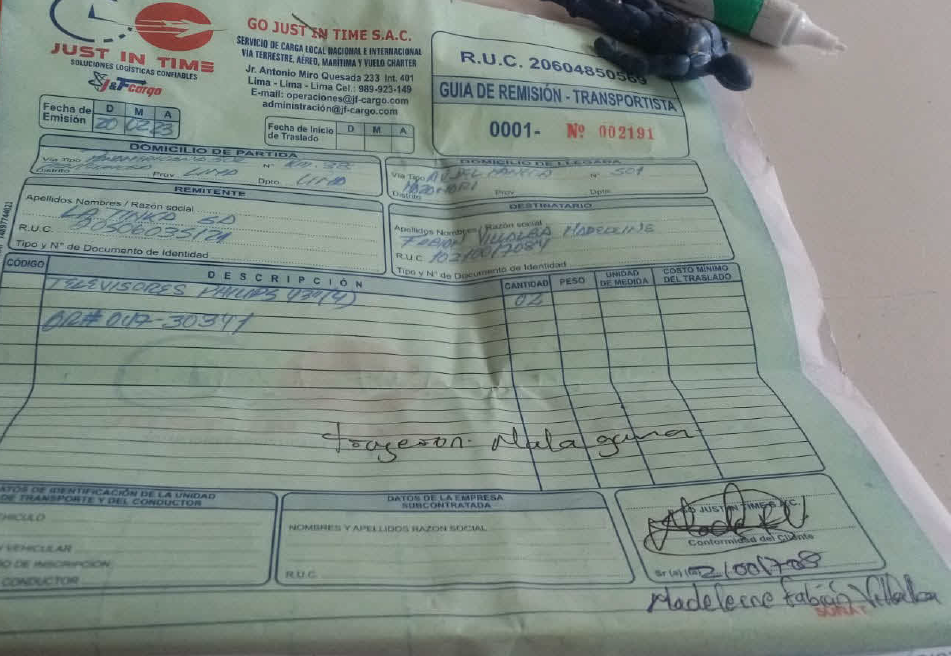 JUST IN TIME
SOLUCIONES LOGÍSTICAS CONFIABLES
J&F cargo
GO JUST IN TIME S.A.C.
SERVICIO DE CARGA LOCAL NACIONAL E INTERNACIONAL
VIA TERRESTRE, AÉREO, MARÍTIMA Y VUELO CHARTER
Jr. Antonio Miro Quesada 233 Int. 401
Lima - Lima - Lima Cel.: 989-923-149
E-mail: operaciones@jf-cargo.com
administración@jf-cargo.com
R.U.C. 20604850569
GUIA DE REMISIÓN - TRANSPORTISTA
0001- Nº 002191
Fecha de Emisión D M A
20 02 23
Fecha de Inicio de Traslado D M A
DOMICILIO DE PARTIDA
Via Tipo Nº
Distrito Prov. LIMA Dpto. LIMA
DOMICILIO DE LLEGADA
Via Tipo Nº 501
Distrito Prov. Dpto.
REMITENTE
Apellidos Nombres / Razón social
LA TINKA SA
R.U.C. 20506035121
Tipo y N° de Documento de Identidad
DESTINATARIO
Apellidos Nombres / Razón social
FABIAN VILLALBA MADELEINE
R.U.C. 10210017084
Tipo y N° de Documento de Identidad
CÓDIGO DESCRIPCIÓN CANTIDAD PESO UNIDAD DE MEDIDA COSTO MÍNIMO DEL TRASLADO
TELEVISORES PHILIPS 02
OR# 047-30341
DATOS DE IDENTIFICACIÓN DE LA UNIDAD
DE TRANSPORTE Y DEL CONDUCTOR
VEHICULO
VEHICULAR
DE INSCRIPCIÓN
CONDUCTOR
DATOS DE LA EMPRESA
SUBCONTRATADA
NOMBRES Y APELLIDOS RAZON SOCIAL
R.U.C.
GO JUST IN TIME S.A.C.
Conformidad del Cliente
Madeleine Fabián Villalba
SUNAT